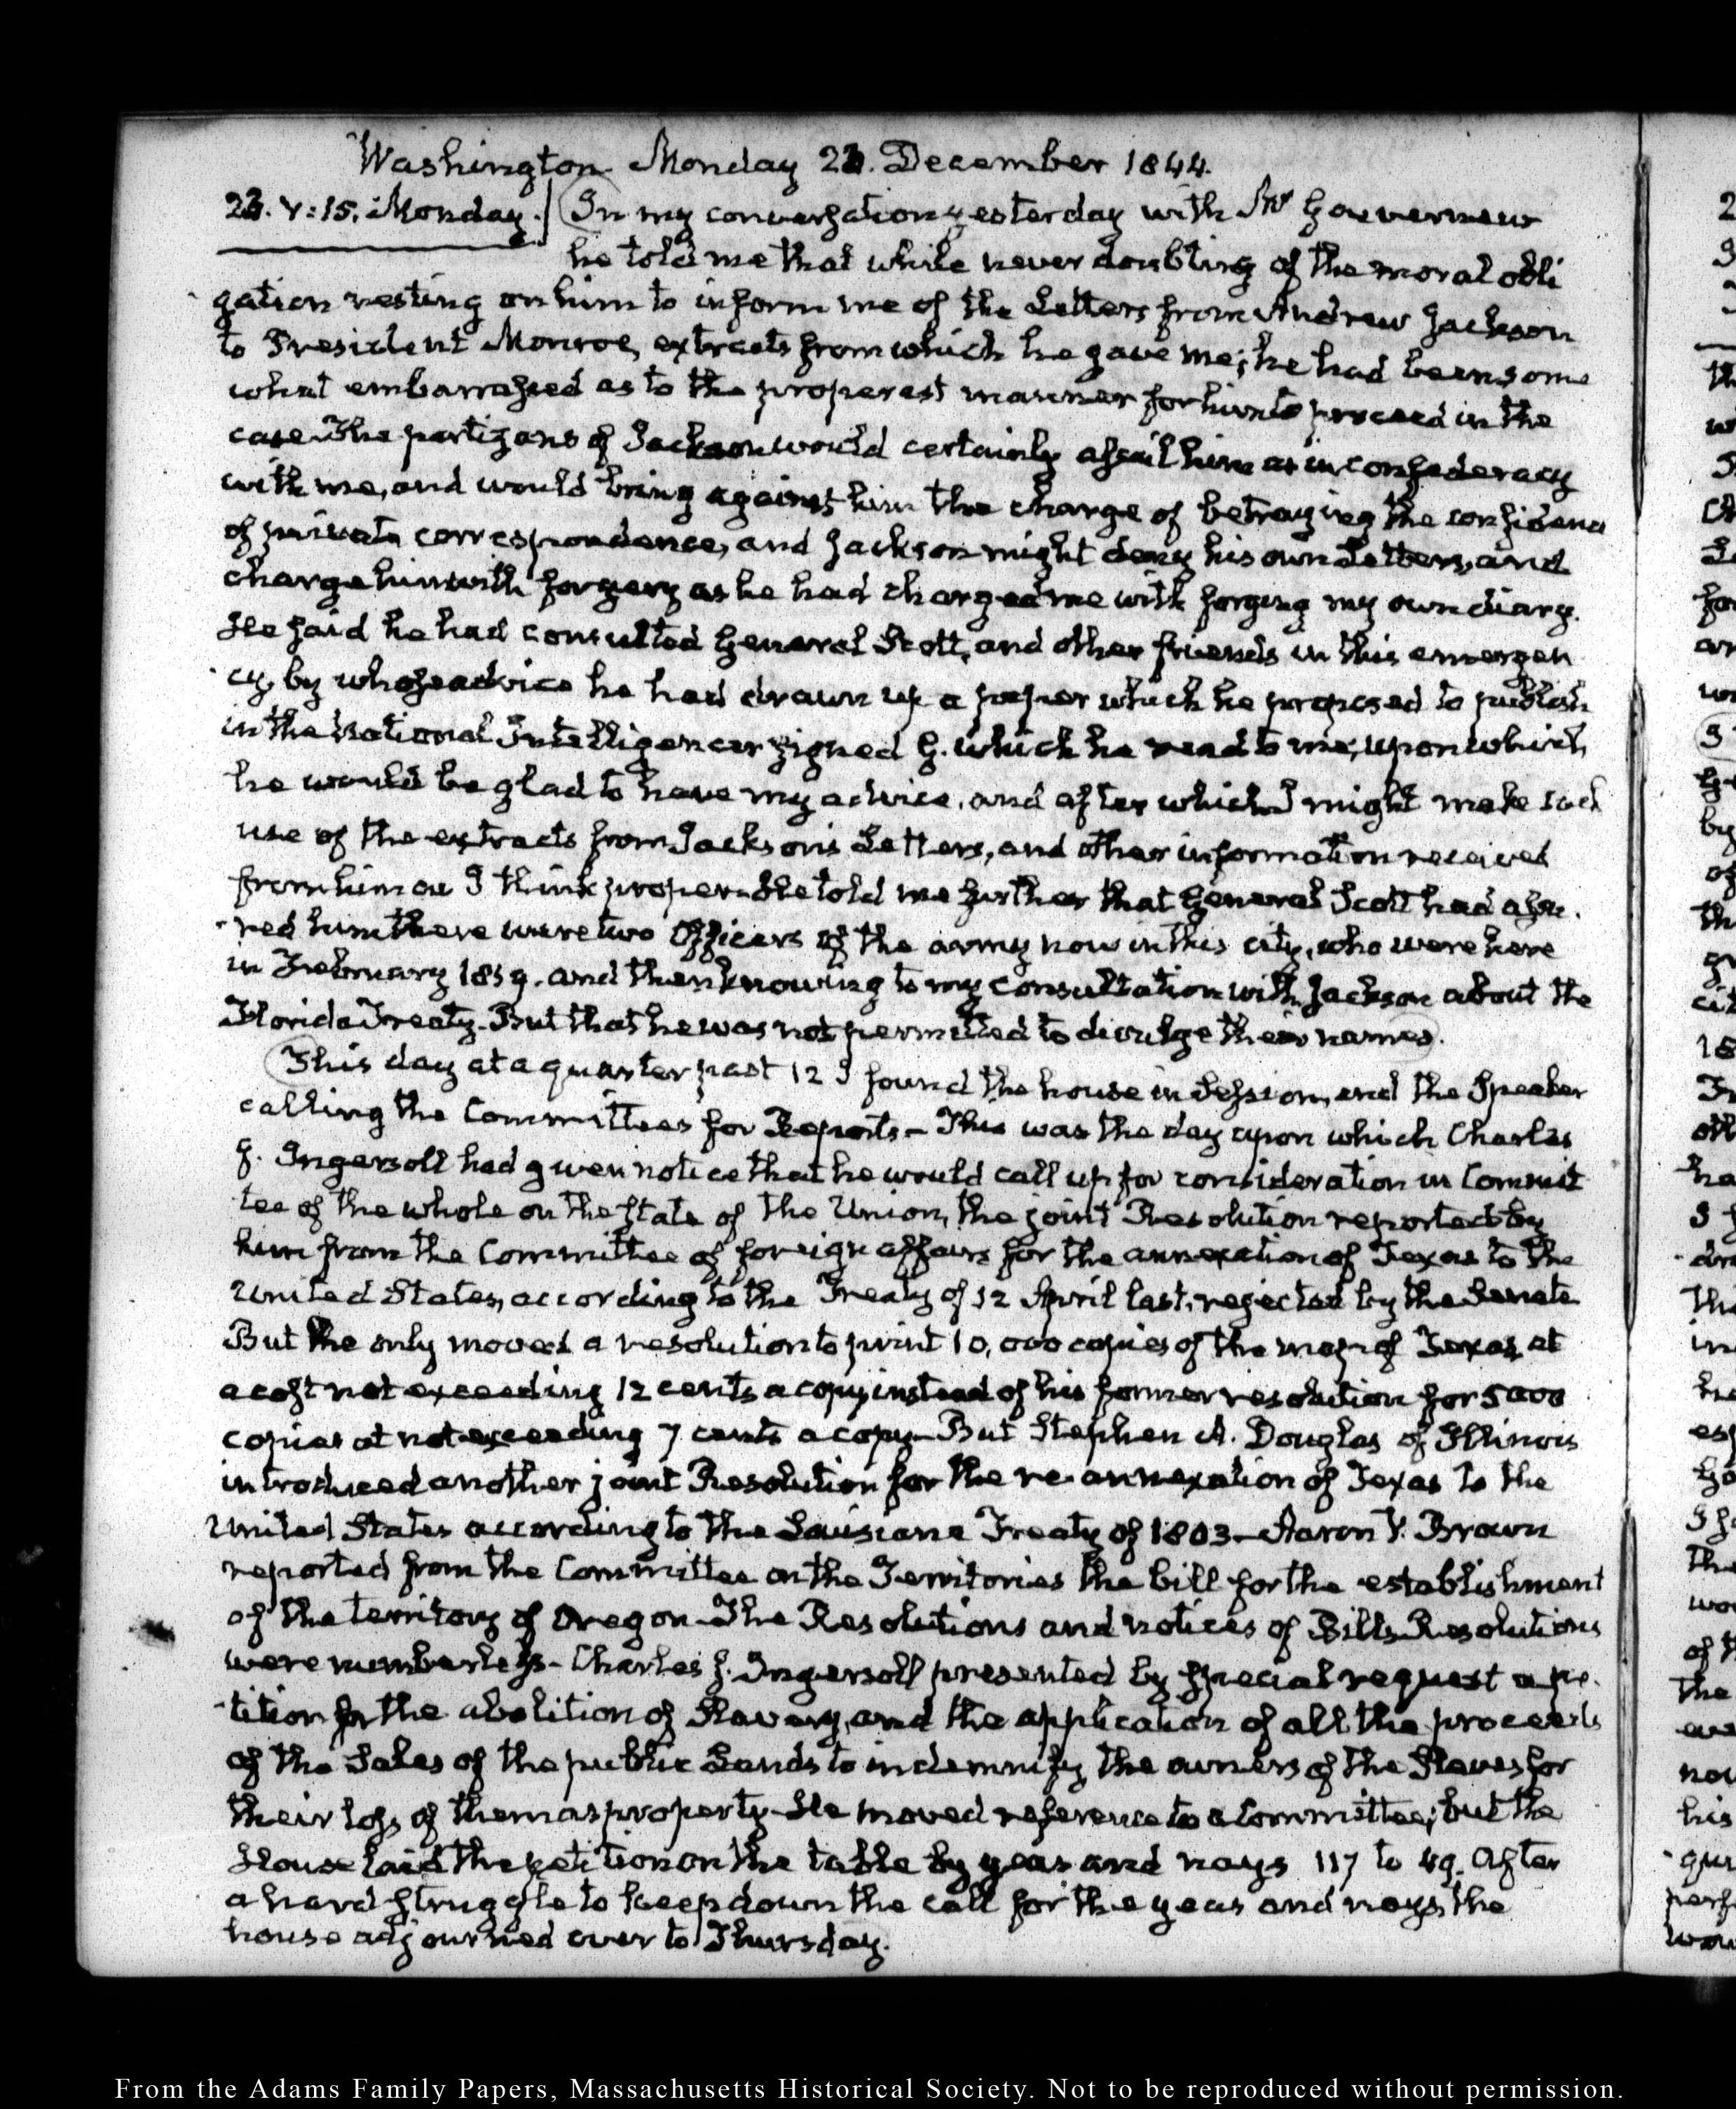 Washington Monday 23. December 1844.
23. V:15. Monday. In my conversation yesterday with Mr Gouverneur
he told me that while never doubting of the moral obli
gation resting on him to inform me of the Letters from Andrew Jackson
to President Monroe, extracts from which he gave me; he had been some
what embarrassed as to the properest manner for him to proceed in the
case. The partizans of Jackson would certainly assail him as in confederacy
with me, and would bring against him the charge of betraying the confidence
of private correspondence, and Jackson might deny his own Letters, and
charge him with forgery as he had charged me with forging my own diary.
He said he had consulted General Scott, and other friends in this emergen
cy, by whose advice he had drawn up a paper which he proposed to publish
in the National Intelligencer signed G. which he read to me, upon which
he would be glad to have my advice, and after which I might make such
use of the extracts from Jackson's Letters, and other information received
from him as I think proper. He told me further that General Scott had assu-
-red him there were two Officers of the army now in this city, who were here
in February 1819. and then knowing to my consultation with Jackson about the
Florida Treaty. But that he was not permitted to divulge their names.
This day at a quarter past 12 I found the house in Session, and the Speaker
calling the Committees for Reports— This was the day upon which Charles
J. Ingersoll had given notice that he would call up for consideration in Commit
tee of the whole on the State of the Union, the joint Resolution reported by
him from the Committee of foreign affairs for the annexation of Texas to the
United States, according to the Treaty of 12 April last, rejected by the Senate
But he only moved a resolution to print 10,000 copies of the map of Texas, at
a cost not exceeding 12 cents a copy instead of his former resolution for 5000
copies at not exceeding 7 cents a copy— But Stephen A. Douglas of Illinois
introduced another joint Resolution for the re-annexation of Texas to the
United States according to the Louisiana Treaty of 1803— Aaron V. Brown
reported from the Committee on the Territories the bill for the establishment
of the territory of Oregon— The Resolutions and notices of Bills Resolutions
were numberless— Charles J. Ingersoll presented by special request a pe-
-tition for the abolition of Slavery, and the application of all the proceeds
of the Sales of the public Lands to indemnify the owners of the Slaves for
their loss of them as property— He moved reference to a Committee; but the
House laid the petition on the table by yeas and nays 117 to 49. After
a hard struggle to keep down the call for the yeas and nays, the
house adjourned over to Thursday.
From the Adams Family Papers, Massachusetts Historical Society. Not to be reproduced without permission.